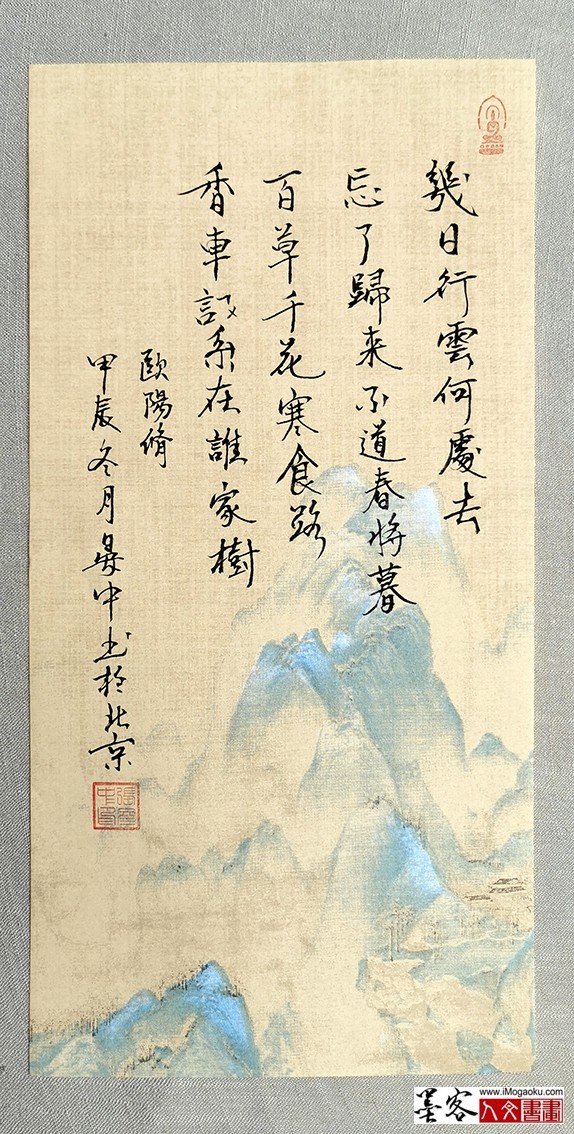 幾日行雲何處去
忘了歸来不道春將暮
百草千花寒食路
香車設系在誰家樹
歐陽脩
甲辰冬月
中书於北京
www.iMogaoku.com
墨客
人文書畫